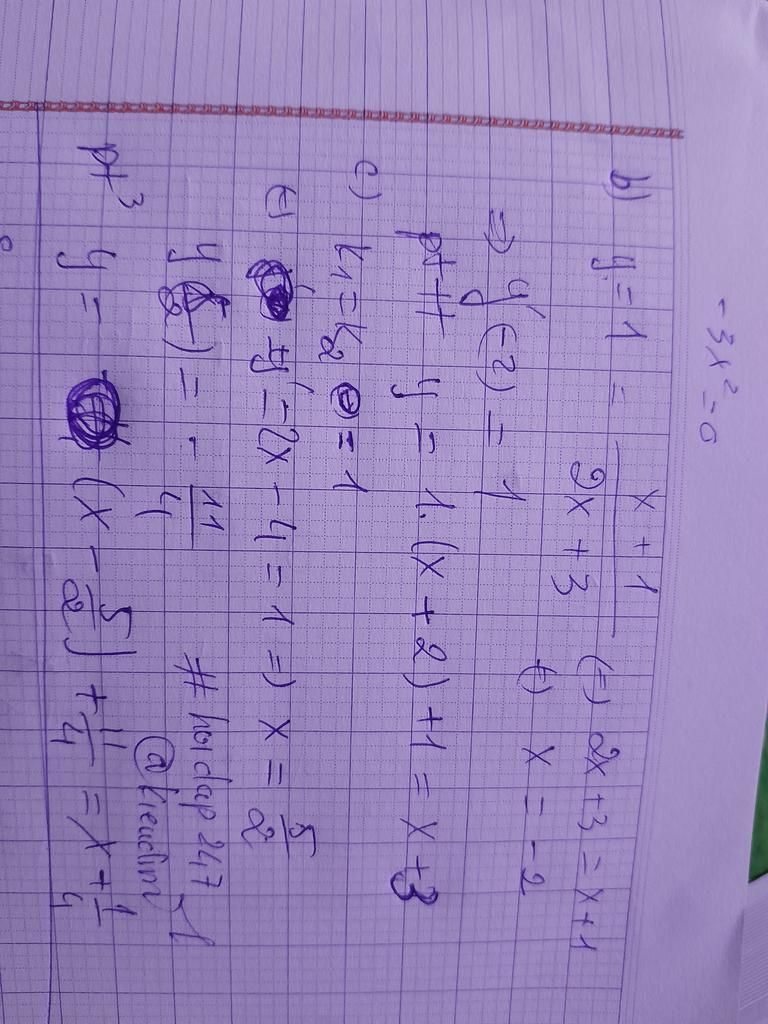 -3x² = 0
b) y = 1 = \frac{x + 1}{2x + 3} (=) 2x + 3 = x + 1
(=) x = -2
=) y'(-2) = 1
pt tt y = 1.(x + 2) + 1 = x + 3
c) k₁ = k₂ = 1
(=) y' = 2x - 4 = 1 =) x = \frac{5}{2}
y(\frac{5}{2}) = -\frac{11}{4} # hoidap247
pt³ y = (x - \frac{5}{2}) + \frac{11}{4} = x + \frac{1}{4}